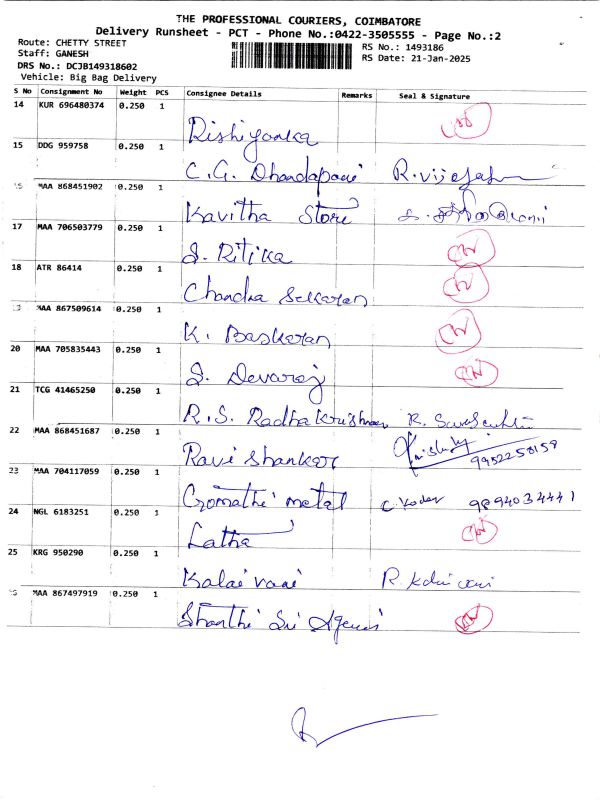 THE PROFESSIONAL COURIERS, COIMBATORE
Delivery Runsheet - PCT - Phone No.:0422-3505555 - Page No.:2
Route: CHETTY STREET
Staff: GANESH
DRS No.: DCJB149318602
Vehicle: Big Bag Delivery
RS No.: 1493186
RS Date: 21-Jan-2025
S No Consignment No Weight PCS Consignee Details Remarks Seal & Signature
14 KUR 696480374 0.250 1
Rishiyanka
15 DDG 959758 0.250 1
C.G. Dhandapani
MAA 868451902 0.250 1
Kavitha Store
17 MAA 706503779 0.250 1
S. Ritika
18 ATR 86414 0.250 1
Chandra Sekaran
MAA 867509614 0.250 1
K. Baskaran
20 MAA 705835443 0.250 1
S. Devaraj
21 TCG 41465250 0.250 1
R.S. Radhakrishnan
22 MAA 868451687 0.250 1
Ravi Shankar 9952258159
23 MAA 704117059 0.250 1
Gomathi metal 9894034441
24 NGL 6183251 0.250 1
Latha
25 KRG 950290 0.250 1
Kalaivani
MAA 867497919 0.250 1
Shanthi Sri Agenci